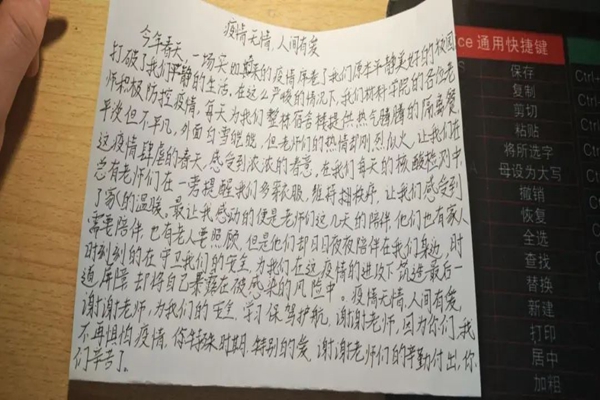 疫情无情，人间有爱
今年春天，一场突如其来的疫情席卷了我们原本平静美好的校园
打破了我们平静的生活，在这么严峻的情况下，我们材料学院的各位老
师积极防控疫情，每天为我们整栋宿舍楼提供热气腾腾的隔离餐
平淡但不平凡，外面白雪皑皑，但老师们的热情却刚烈似火，让我们在
这疫情肆虐的春天，感受到浓浓的春意，在我们每天的核酸检测中
总有老师们在一旁提醒我们多穿衣服，维持排秩序，让我们感受到
了家的温暖。最让我感动的便是老师们这几天的陪伴，他们也有家人
需要陪伴，也有老人要照顾，但是他们却日日夜夜陪伴在我们身边，时
时刻刻的在守卫我们的安全，为我们在这疫情的进攻下筑造最后一
道屏障却将自己暴露在被感染的风险中。疫情无情，人间有爱，
谢谢老师，为我们的安全，学习保驾护航，谢谢老师，因为你们，我们
不再惧怕疫情，你特殊时期，特别的爱，谢谢老师们的辛勤付出，你
们辛苦了。
ce通用快捷键
保存
Ctrl+
复制
Ctrl
剪切
粘贴
将所选字
母设为大写
撤销
恢复
全选
查找
替换
新建
打印
居中
加粗